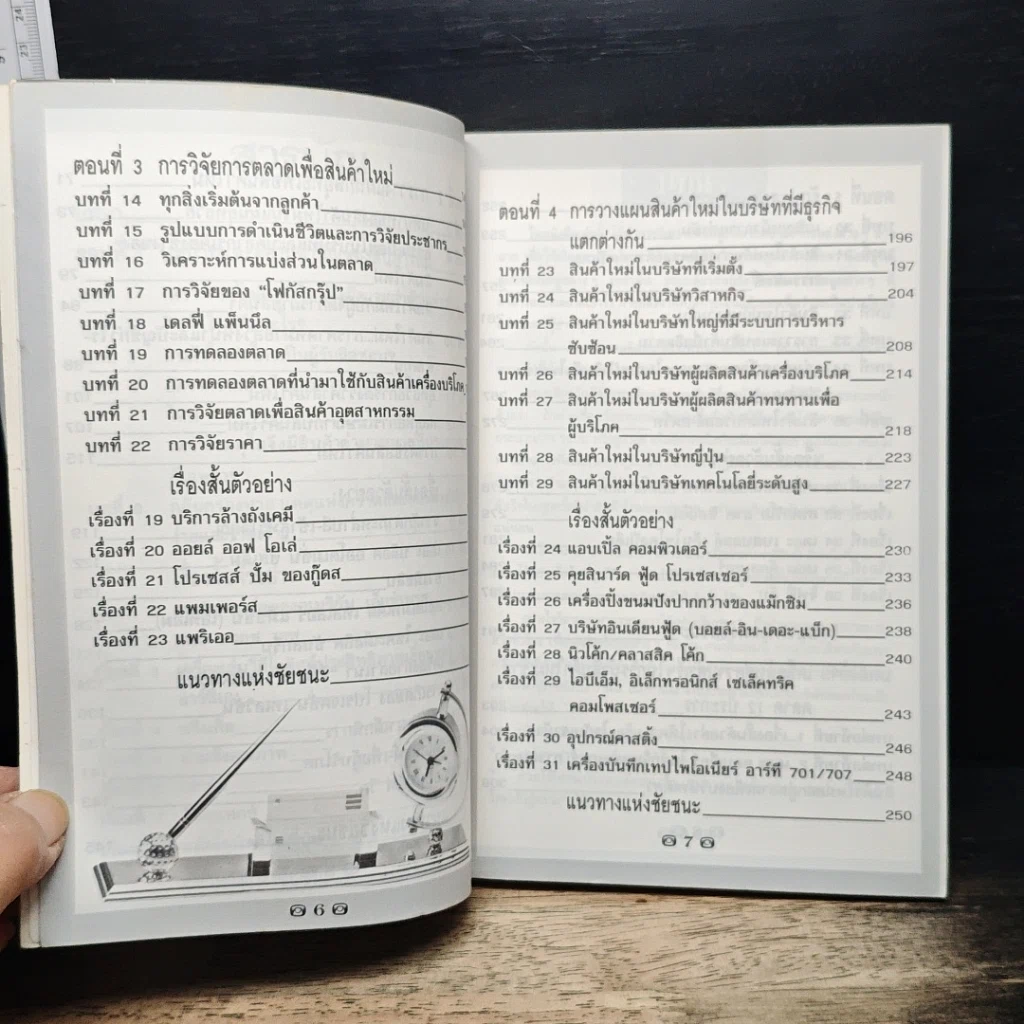 ตอนที่ 3 การวิจัยการตลาดเพื่อสินค้าใหม่
บทที่ 14 ทุกสิ่งเริ่มต้นจากลูกค้า
บทที่ 15 รูปแบบการดำเนินชีวิตและการวิจัยประชากร
บทที่ 16 วิเคราะห์การแบ่งส่วนในตลาด
บทที่ 17 การวิจัยของ “โฟกัสกรุ๊ป”
บทที่ 18 เดลฟี่ แพ็นนึล
บทที่ 19 การทดลองตลาด
บทที่ 20 การทดลองตลาดที่นำมาใช้กับสินค้าเครื่องบริโภค
บทที่ 21 การวิจัยตลาดเพื่อสินค้าอุตสาหกรรม
บทที่ 22 การวิจัยราคา
เรื่องสั้นตัวอย่าง
เรื่องที่ 19 บริการล้างถังเคมี
เรื่องที่ 20 ออยล์ ออฟ โอเล่
เรื่องที่ 21 โปรเซสส์ ปั้ม ของกู๊ดส
เรื่องที่ 22 แพมเพอร์ส
เรื่องที่ 23 แพริเออ
แนวทางแห่งชัยชนะ
6
ตอนที่ 4 การวางแผนสินค้าใหม่ในบริษัทที่มีธุรกิจ
แตกต่างกัน 196
บทที่ 23 สินค้าใหม่ในบริษัทที่เริ่มตั้ง 197
บทที่ 24 สินค้าใหม่ในบริษัทวิสาหกิจ 204
บทที่ 25 สินค้าใหม่ในบริษัทใหญ่ที่มีระบบการบริหาร
ซับซ้อน 208
บทที่ 26 สินค้าใหม่ในบริษัทผู้ผลิตสินค้าเครื่องบริโภค 214
บทที่ 27 สินค้าใหม่ในบริษัทผู้ผลิตสินค้าทนทานเพื่อ
ผู้บริโภค 218
บทที่ 28 สินค้าใหม่ในบริษัทญี่ปุ่น 223
บทที่ 29 สินค้าใหม่ในบริษัทเทคโนโลยี่ระดับสูง 227
เรื่องสั้นตัวอย่าง
เรื่องที่ 24 แอบเปิ้ล คอมพิวเตอร์ 230
เรื่องที่ 25 คุยสินาร์ด ฟู้ด โปรเซสเซอร์ 233
เรื่องที่ 26 เครื่องปิ้งขนมปังปากกว้างของแม๊กซิม 236
เรื่องที่ 27 บริษัทอินเดียนฟู้ด (บอยล์-อิน-เดอะ-แบ็ก) 238
เรื่องที่ 28 นิวโค้ก/คลาสสิค โค้ก 240
เรื่องที่ 29 ไอบีเอ็ม, อิเล็กทรอนิกส์ เซเล็คทริค
คอมโพสเซอร์ 243
เรื่องที่ 30 อุปกรณ์คาสติ้ง 246
เรื่องที่ 31 เครื่องบันทึกเทปไพโอเนียร์ อาร์ที 701/707 248
แนวทางแห่งชัยชนะ 250
7